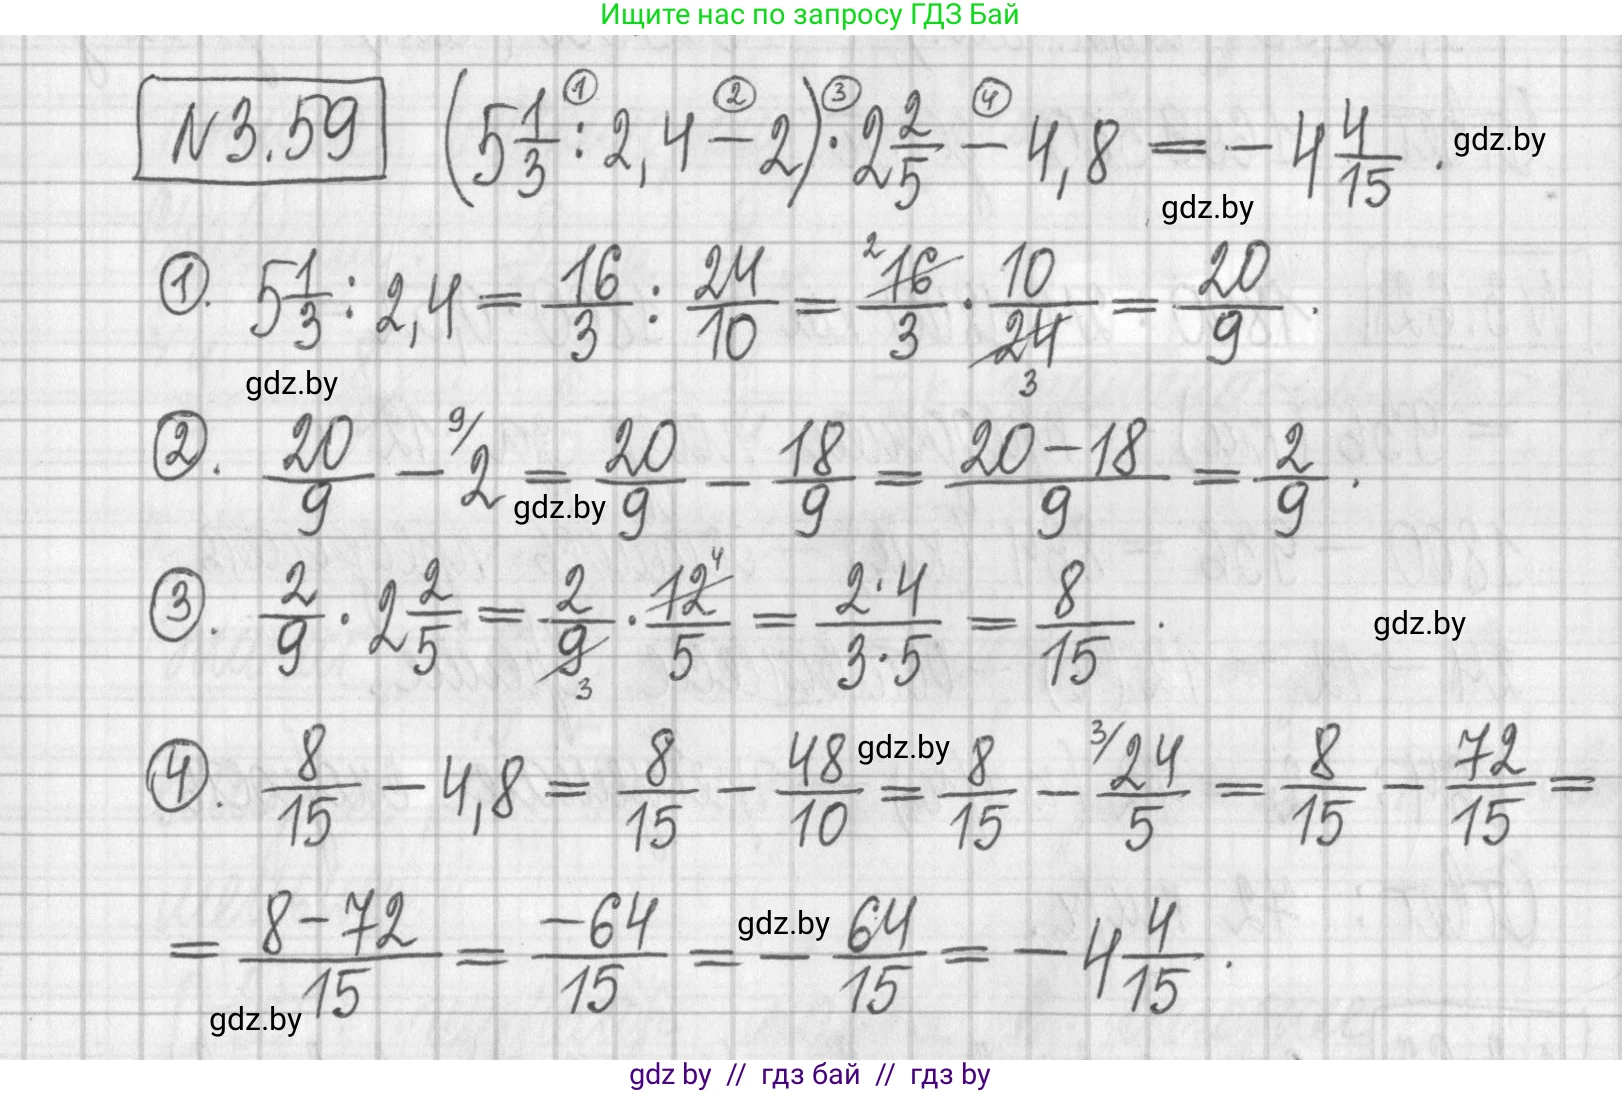 Ищите нас по запросу ГДЗ Бай
N3.59 (5 1/3 : 2,4 - 2) · 2 2/5 - 4,8 = - 4 4/15 . gdz.by
① ② ③ ④
gdz.by
①. 5 1/3 : 2,4 = 16/3 : 24/10 = 16/3 · 10/24 = 20/9 .
2 3
gdz.by
②. 20/9 - 2 = 20/9 - 18/9 = (20-18)/9 = 2/9 .
9/
gdz.by
③. 2/9 · 2 2/5 = 2/9 · 12/5 = (2·4)/(3·5) = 8/15 .
4 3
gdz.by
④. 8/15 - 4,8 = 8/15 - 48/10 = 8/15 - 24/5 = 8/15 - 72/15 =
3/
gdz.by
= (8-72)/15 = -64/15 = - 64/15 = - 4 4/15 .
gdz.by
gdz.by
gdz by // гдз бай // гдз by